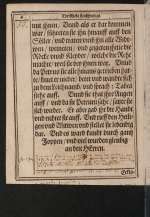 Der Apostel Geschichte
mit jhnen. Vnnd als er dar kommen
war, führeten sie jhn hinauff auff den
Söller, vnd traten vmb jhn alle Wid-
wen, weineten, vnd zeigeten jhm die
Röcke vnd Kleyder, welche die Rehe
machte, weil sie bey jhnen war. Vnnd
da Petrus sie alle hinauß getrieben
hatte, knyet er nider, betet vnd wandte sich
zu dem Leichnam, vnd sprach: Tabea
stehe auff. Vnnd sie thet jhre Augen
auff, vnd da sie Petrum sahe, satzte sie
sich wider. Er aber gab jhr die Handt,
vnd richtet sie auff. Vnd rieff den Heili-
gen vnd Widwen vnd stellet sie lebendig
dar. Vnd es ward kundt durch gantz
Joppen, vnd viel wurden gleubig
an den HErren.